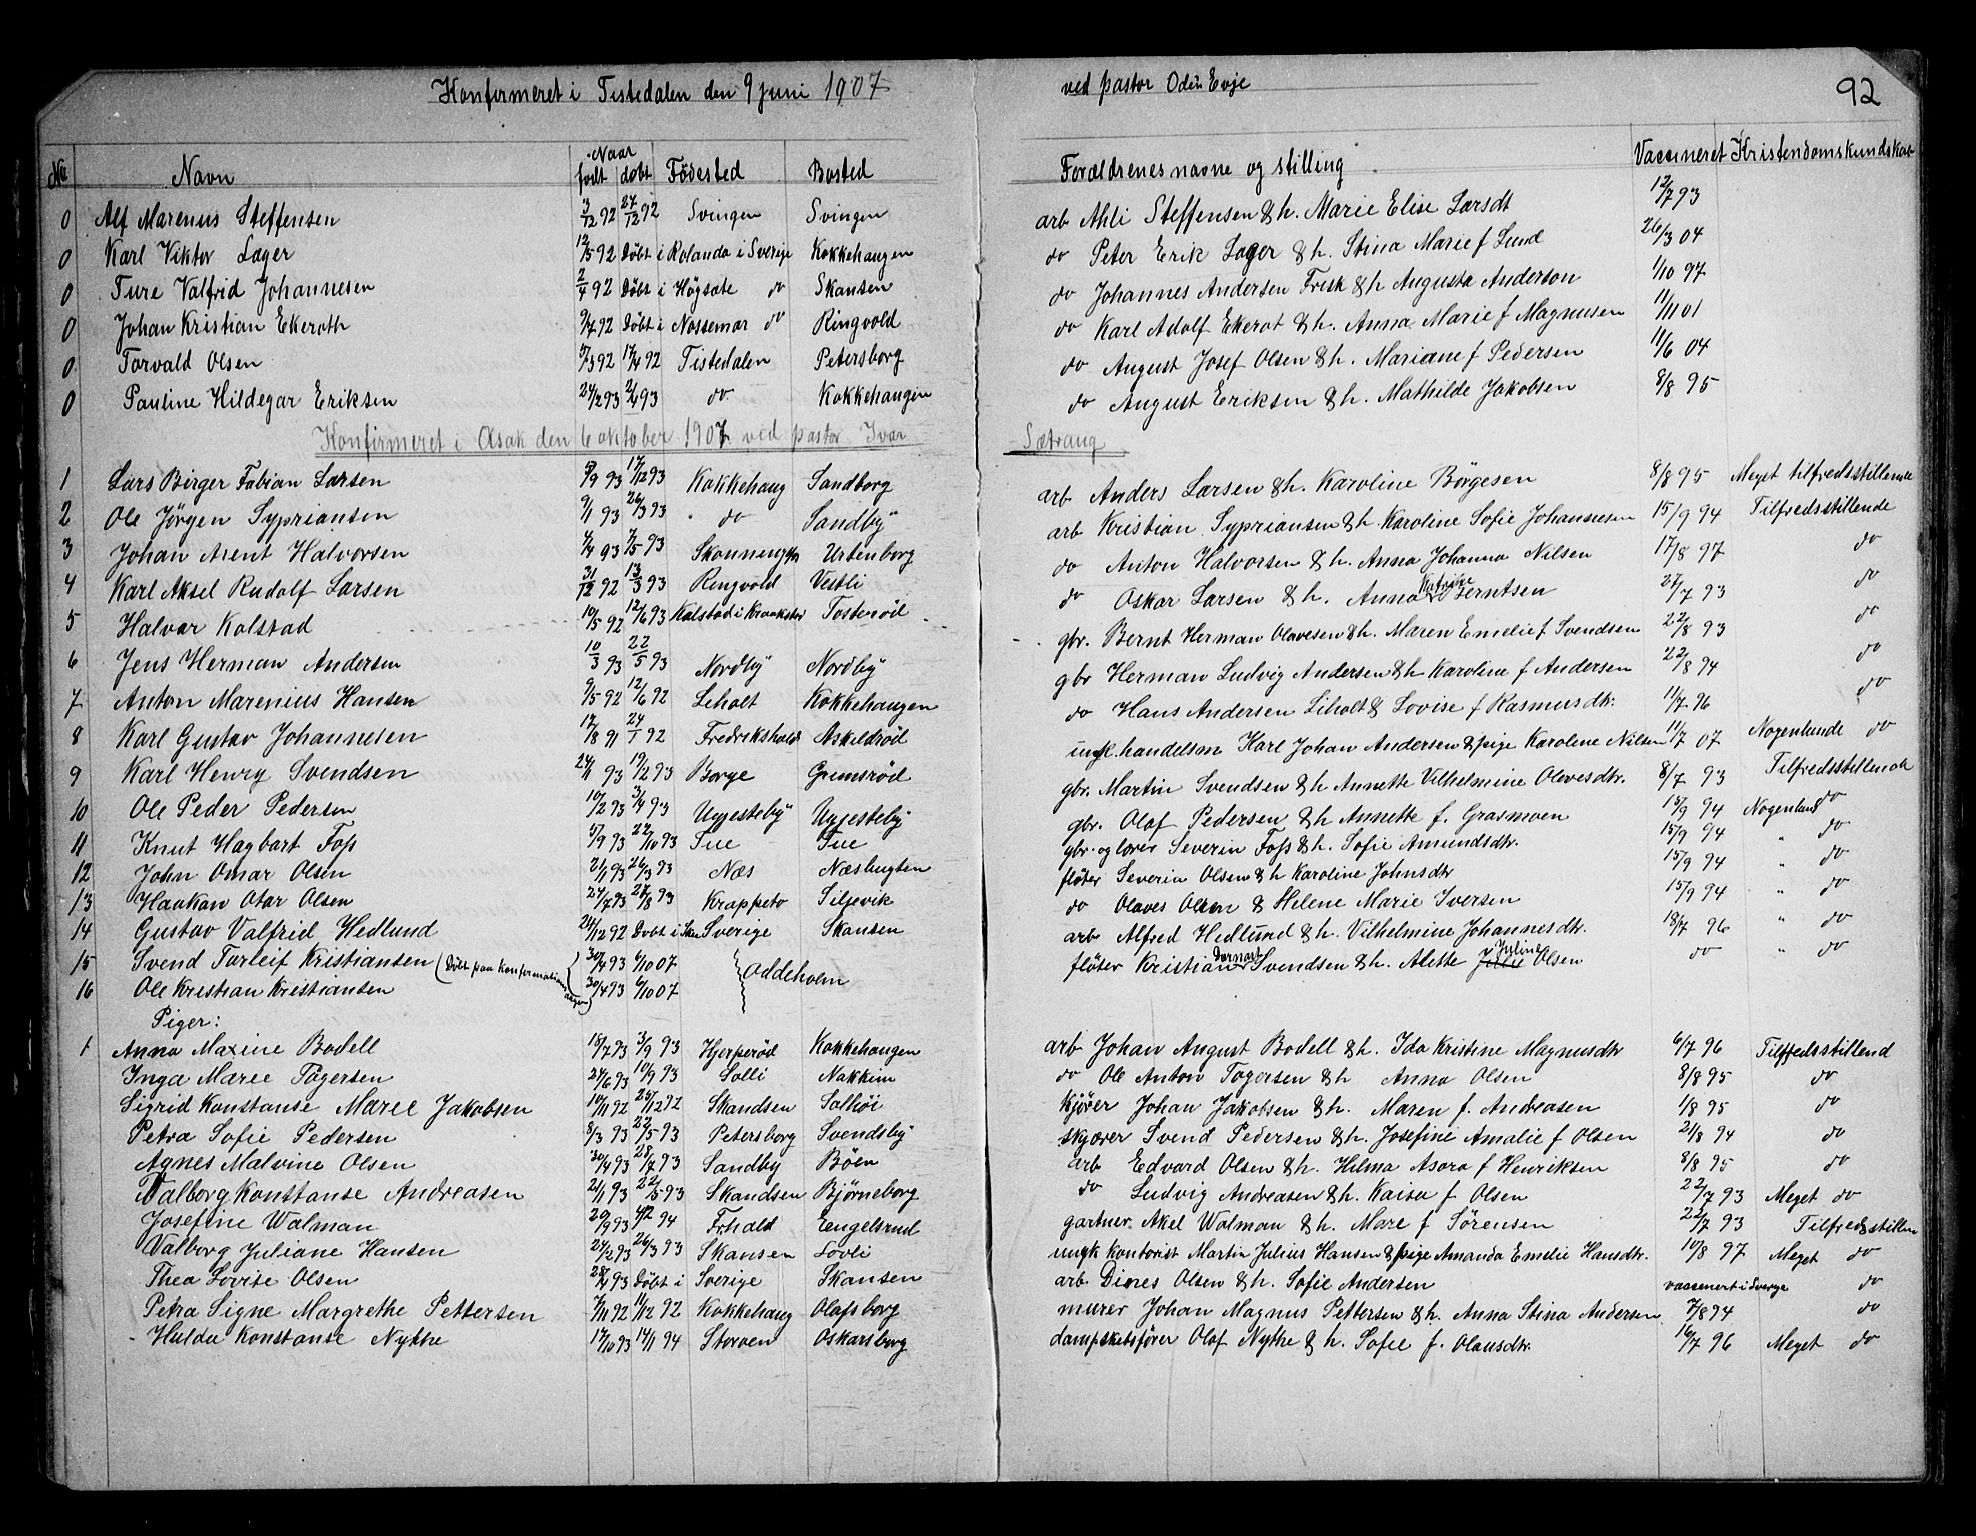 Konfirmeret i Tistedalen den 9 juni 1907 ved pastor Odin Evje 92
No Navn Naar født døbt Fødested Bosted Forældrenes navne og stilling Vaccineret Kristendomskundskab
0 Alf Marenius Steffensen 3/12 92 27/12 92 Svingen Svingen arb Ahli Steffensen & h. Marie Elise Larsdt 12/7 93
0 Karl Viktor Lager 12/5 92 Døbt i Rolanda i Sverige Kokkehaugen do Peter Erik Lager & h. Stina Marie f Lund 26/3 04
0 Ture Valfrid Johannesen 2/4 92 Døbt i Høgsäte do Skansen do Johannes Andersen Fresk & h Augusta Anderson 1/10 97
0 Johan Kristian Ekeroth 9/7 92 Døbt i Nossemar do Ringvold do Karl Adolf Ekerot & h. Anna Marie f Magnusen 11/11 01
0 Torvald Olsen 5/3 92 17/4 92 Tistedalen Petersborg do August Josef Olsen & h. Mariane f Pedersen 11/6 04
0 Pauline Hildegar Eriksen 24/2 93 2/4 93 do Kokkehaugen do August Eriksen & h. Mathilde Jakobsen 8/8 95
Konfirmeret i Asak den 6 oktober 1907 ved pastor Ivar Sætrang
1 Lars Birger Fabian Larsen 5/9 93 17/12 93 Kokkehaug Sandborg arb Anders Larsen & h. Karoline Börgesen 8/8 95 Meget tilfredsstillende
2 Ole Jörgen Sypriansen 9/1 93 26/3 93 do Sandby arb Kristian Sypriansen & h. Karoline Sofie Johannesen 15/9 94 Tilfredsstillende
3 Johan Arent Halvorsen 4/4 93 7/5 93 Skonningfos Urtenborg do Anton Halvorsen & h. Anna Johanna Nilsen 17/8 97 do
4 Karl Aksel Rudolf Larsen 31/12 92 13/3 93 Ringvold Vestli do Oskar Larsen & h. Anna Katrine Berntsen 27/7 93 do
5 Halvar Kolstad 10/5 92 12/6 93 Kolstad i Kraakstad Tosteröd gbr. Bernt Herman Olavesen & h. Maren Emelie f Svendsen 22/8 93 do
6 Jens Herman Andersen 10/3 93 22/5 93 Nordby Nordby gbr Herman Ludvig Andersen & h Karoline f Andersen 22/8 94 do
7 Anton Marenius Hansen 9/5 92 12/6 92 Leholt Kokkehaugen do Hans Andersen Liholt & Lovise f Rasmusdtr. 11/7 96 do
8 Karl Gustav Johannesen 17/8 91 24/1 92 Fredrikshald Askildröd ungk. handelsm Karl Johan Andersen & pige Karoline Nilsen 11/7 07 Nogenlunde do
9 Karl Henry Svendsen 24/1 93 19/2 93 Borge Grimsröd gbr. Martin Svendsen & h Annette Vilhelmine Olavesdtr. 8/7 93 Tilfredsstillende
10 Ole Peder Pedersen 10/2 93 3/4 93 Uggesteby Uggesteby gbr. Olaf Pedersen & h Annette f. Graamoen 15/9 94 Nogenlund do
11 Knut Hagbart Foss 5/9 93 22/10 93 Tue Tue gbr. og lærer Severin Foss & h. Sofie Amundsdtr. 15/9 94 " do
12 John Omar Olsen 21/1 93 26/3 93 Næs Næsbugten fløter Severin Olsen & h Karoline Johnsdtr 15/9 94 " do
13 Haakan Otar Olsen 24/7 93 27/8 93 Krappeto Siljevik do Olaves Olsen & Helene Marie Iversen 15/9 94 " do
14 Gustav Valfrid Hedlund 24/12 92 Døbt i Sverige Skansen arb Alfred Hedlund & h. Vilhelmine Johannesdtr. 18/7 96 " do
15 Svend Torleif Kristiansen (Døbt paa Konfirmationsdagen) 30/4 93 6/10 07 Oddeholm fløter Kristian Bernart Svendsen & h. Alette Juline Olsen do " do
16 Ole Kristian Kristiansen 30/4 93 6/10 07
Piger:
1 Anna Maxine Bodell 15/7 93 3/9 93 Hjerperød Kokkehaugen arb Johan August Bodell & h. Ida Kristine Magnusdtr 6/7 96 Tilfredsstillend
Inga Marie Tøgersen 27/6 93 10/9 93 Solli Nokkim do Ole Anton Tøgersen & h Anna Olsen 8/8 95 do
Sigrid Konstanse Marie Jakobsen 10/11 92 25/12 92 Skandsen Solhöi kjører Johan Jakobsen & h. Maren f. Andreasen 1/8 95 do
Petra Sofie Pedersen 8/3 93 22/5 93 Petersborg Svendsby skjærer Svend Pedersen & h. Josefine Amalie f Olsen 21/8 94 do
Agnes Malvine Olsen 30/4 93 23/7 93 Sandby Böen arb Edvard Olsen & h. Hilma Asora f Henriksen 8/8 95 do
Valborg Konstanse Andreasen 21/1 93 22/5 93 Skandsen Bjørneborg do Ludvig Andreasen & h. Kaisa f Olsen 22/7 93 Meget do
Josefine Walman 20/9 93 4/2 94 Frhald Engelsrud gartner. Akel Walman & h. Mare f Sørensen 22/7 93 Tilfredsstillen
Valborg Juliane Hansen 24/2 93 26/3 93 Skansen Lövli ungk kontorist Martin Julius Hansen & pige Amanda Emelie Hansdtr. 10/8 97 Meget do
Thea Lovise Olsen 28/4 93 Døbt i Sverige Skansen arb Dines Olsen & h. Sofie Andersen vaccenert i Sverge do
Petra Signe Margrethe Pettersen 7/11 92 11/12 92 Kokkehaug Olafsborg murer Johan Magnus Pettersen & h. Anna Stina Andersen 7/8 94 do
Hulda Konstanse Nythe 17/10 93 14/1 94 Storoen Oskarsborg dampskibsfører Olaf Nythe & h. Sofie f. Olausdtr. 16/7 96 Meget do